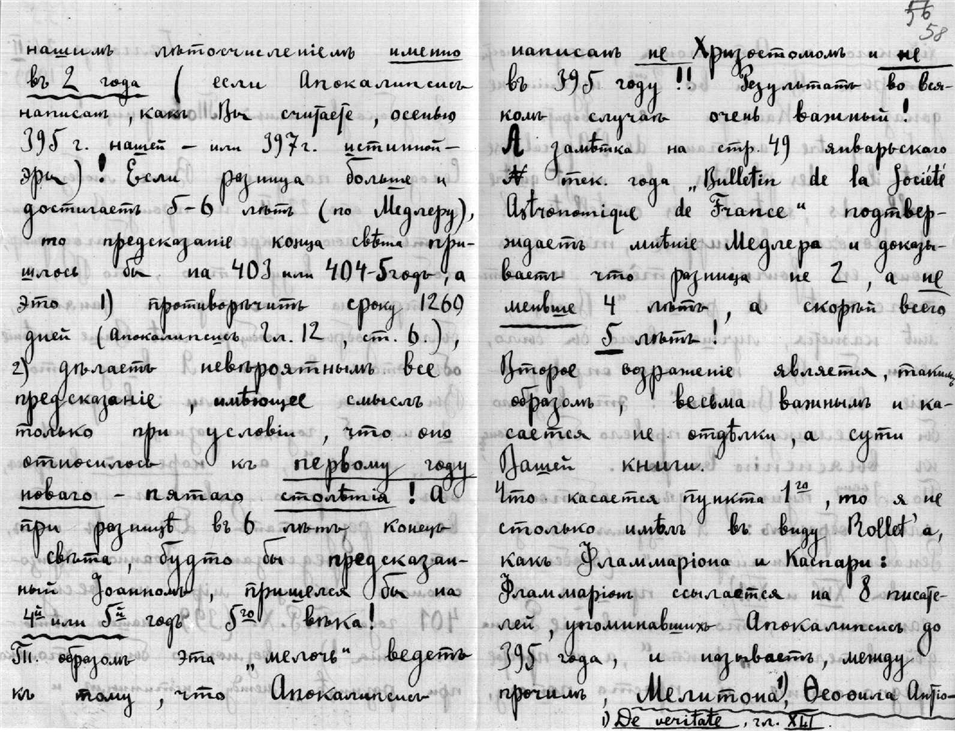 нашимъ лѣтосчисленіемъ именно
въ 2 года ( если Апокалипсисъ
написанъ, какъ Вы считаете, осенью
395 г. нашей – или 397 г. истинной –
эры)! Если разница больше и
достигаетъ 5–6 лѣтъ (по Медлеру),
то предсказаніе конца свѣта при-
шлось бы на 403 или 404–5 годъ, а
это 1) противорѣчитъ сроку 1260
дней (Апокалипсисъ Гл. 12, ст. 6.),
2) дѣлаетъ невѣроятнымъ все
предсказаніе, имѣющее смыслъ
только при условіи, что оно
относилось къ первому году
новаго – пятаго столѣтія! А
при разницѣ въ 6 лѣтъ, конецъ
свѣта, будто бы предсказан-
ный Іоанномъ, пришелся бы на
4й или 5й годъ 5го вѣка!
Т. образомъ эта „мелочь“ ведетъ
къ тому, что Апокалипсисъ
56
58
написанъ не Хризостомомъ и не
въ 395 году!! Результатъ во вся-
комъ случаѣ очень важный!
А замѣтка на стр. 49 январьскаго
№ тек. года „Bulletin de la Société
Astronomique de France“ подтвер-
ждаетъ мнѣніе Медлера и доказы-
ваетъ что разница не 2, а не
меньше 4 лѣтъ, а скорѣй всего
5 лѣтъ!
Второе возраженіе является, такимъ
образомъ, весьма важнымъ и ка-
сается не отдѣлки, а сути
Вашей книги.
Что касается пункта 1го, то я не
столько имѣлъ въ виду Rollet'а,
какъ Фламмаріона и Каспари:
Фламмаріонъ ссылается на 8 писате-
лей, упоминавшихъ Апокалипсисъ до
395 года, и называетъ, между
прочимъ, Мелитона¹), Ѳеофила Антіо-
¹) De veritate, гл. XLI.